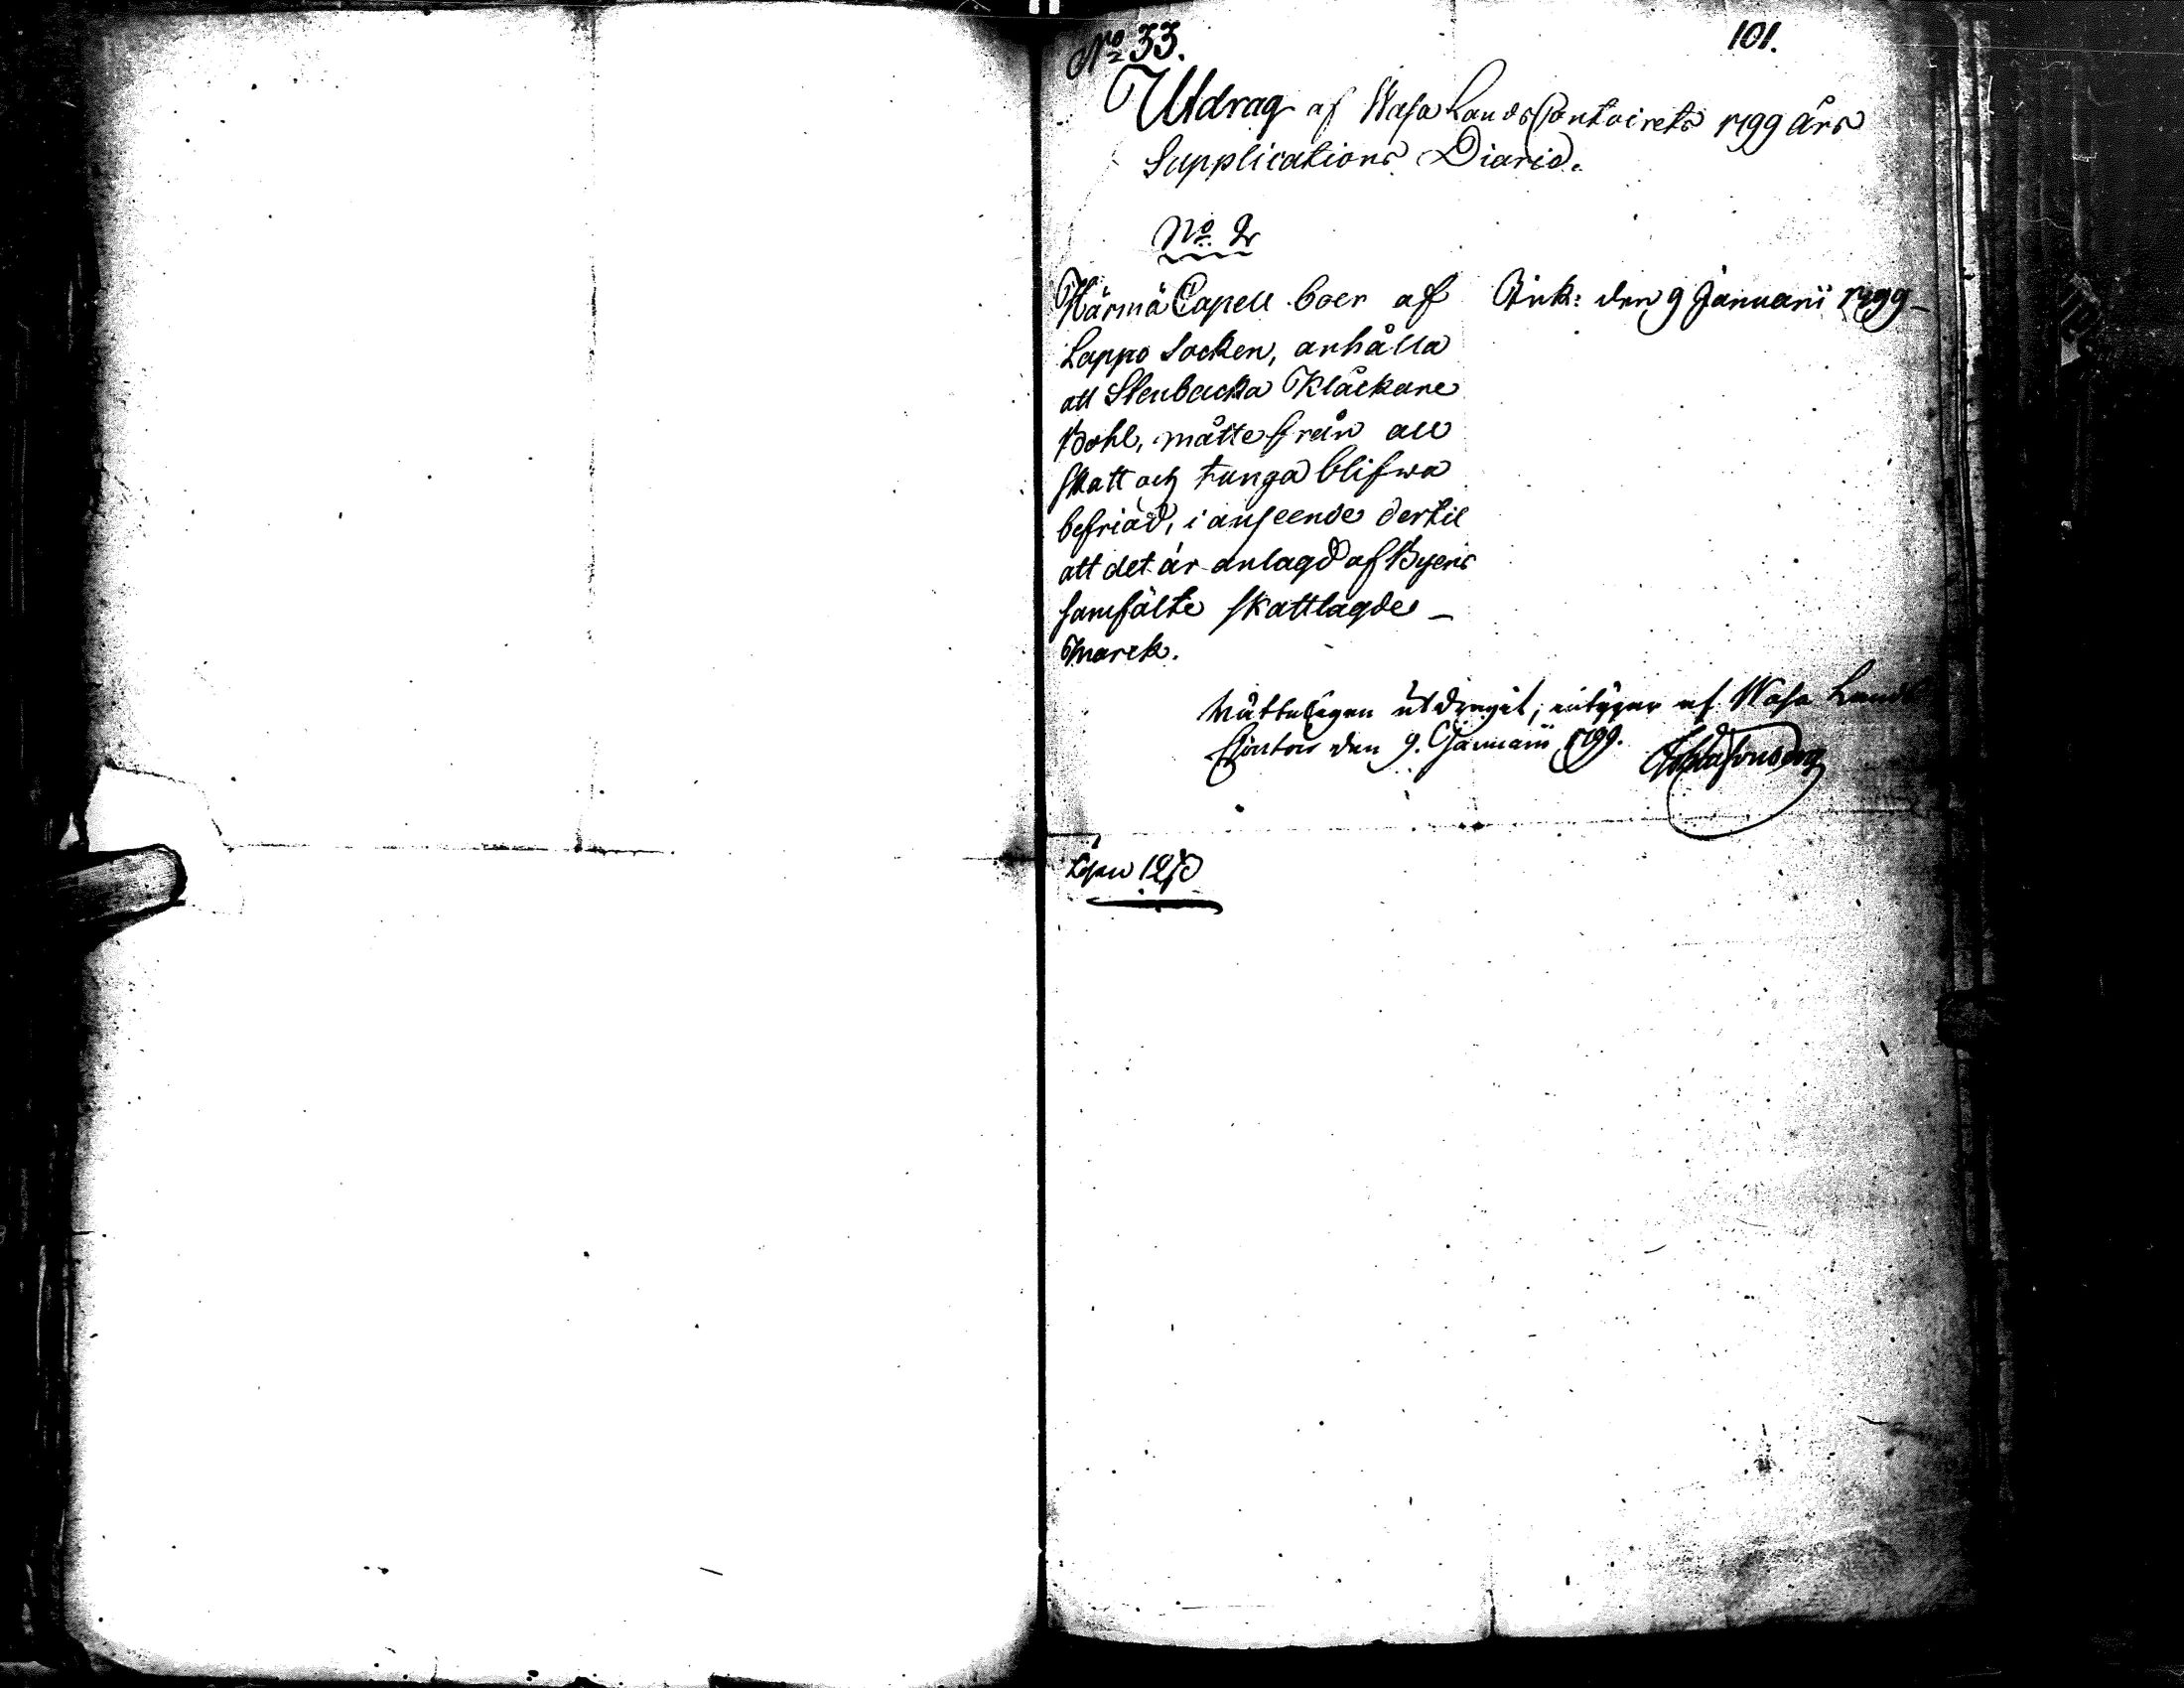 No 33.
101.
Utdrag af Wasa Lands Contoirets 1799 års
Supplications Diario.
No 2
Härmä Capell boer af
Lappo Socken, anhålla
att Stenbacka Klåckare
Bohl, måtte från all
skatt och tunga blifwa
befriad, i anseende dertil
att det är anlagd af Byens
samfälte skattlagde
marck.
Ink: den 9 Januarii 1799
Rätteligen utdragit, intygar af Wasa Lands
Contoir den 9. Januarii 1799.
Lösen 12